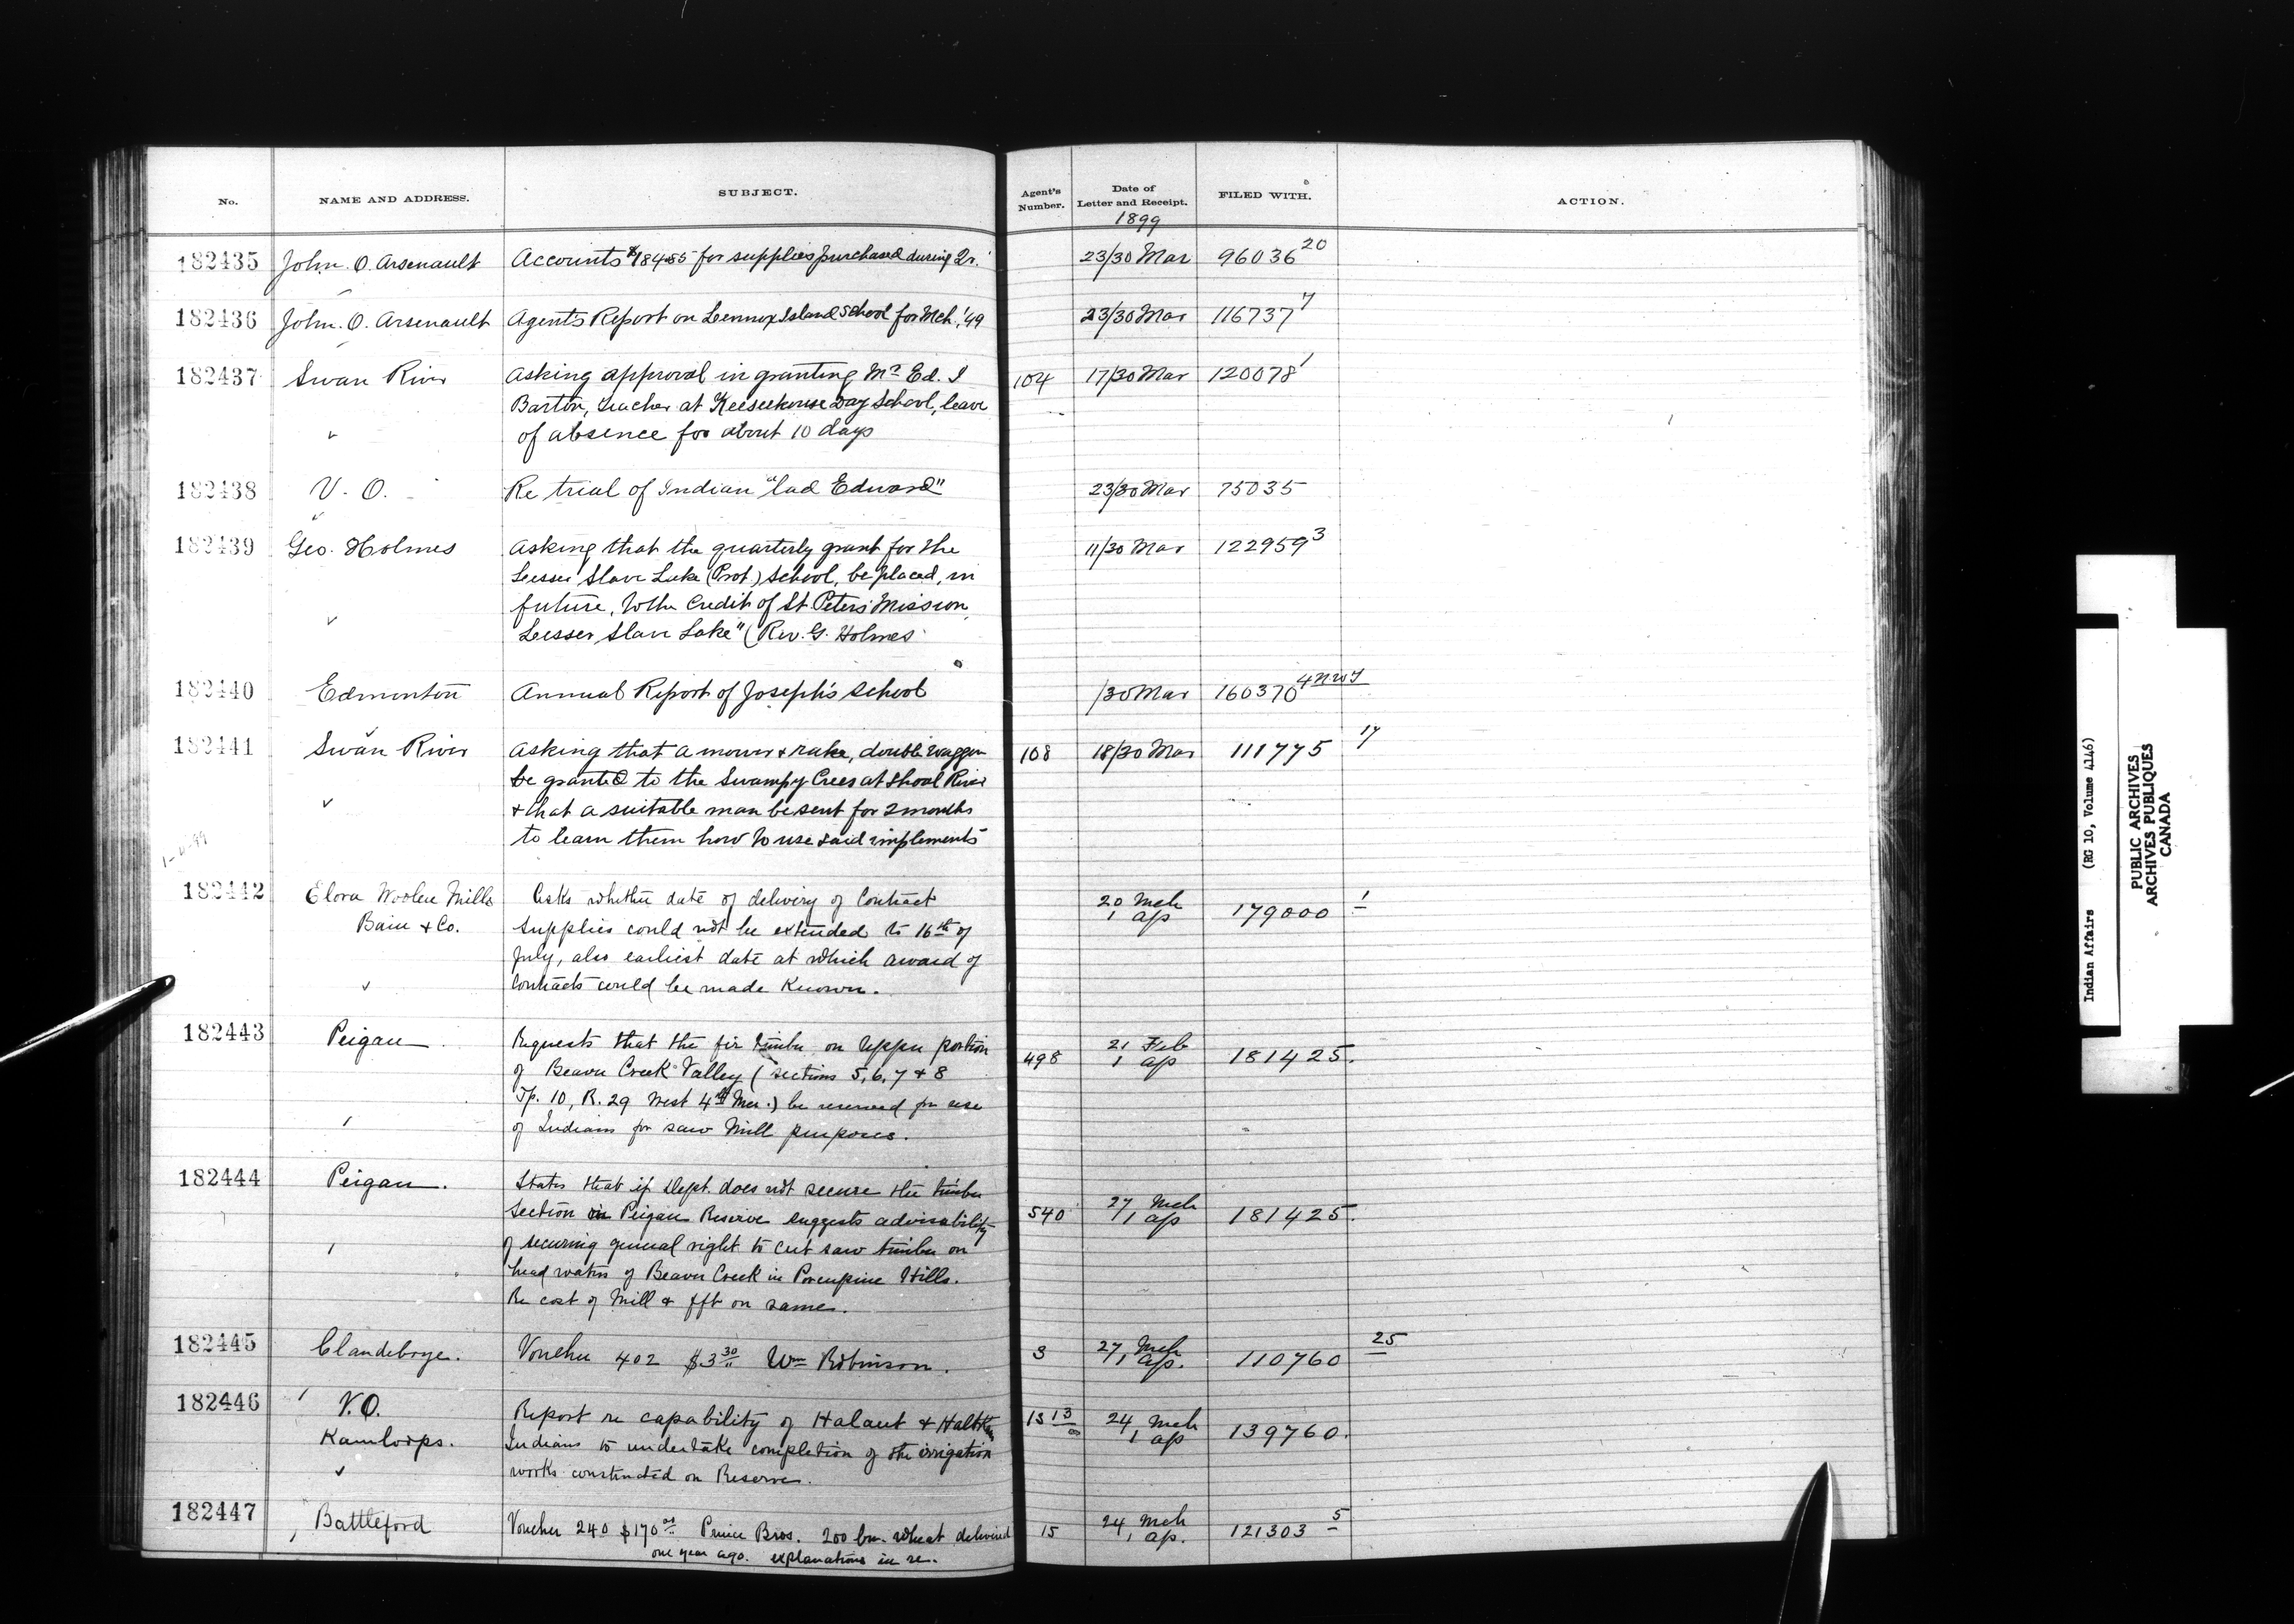 No. NAME AND ADDRESS. SUBJECT. Agent's Number. Date of Letter and Receipt. FILED WITH. ACTION.
1899
182435 John. O. Arsenault Accounts $184.55 for supplies purchased during Qr. 23/30 Mar 96036 20
182436 John. O. Arsenault Agents Report on Lennox Island School for Mch.,'99 23/30 Mar 116737 7
182437 Swan River Asking approval in granting Mr Ed. I 104 17/30 Mar 120078 1
Barton, teacher at Keeseekouse Day School, leave
of absence for about 10 days
182438 V. O. Re trial of Indian "lad Edward" 23/30 Mar 75035
182439 Geo. Holmes Asking that the quarterly grant for the 11/30 Mar 122959 3
Lesser Slave Lake (Prot.) School, be placed, in
future, to the Credit of St Peters Mission,
Lesser Slave Lake" (Rev. G. Holmes
182440 Edmonton Annual Report of Joseph's School /30 Mar 160370 4 NWT
182441 Swan River Asking that a mower & rake, double waggon 108 18/30 Mar 111775 17
be granted to the Swampy Crees at Shoal River
& that a suitable man be sent for 2 months
to learn them how to use said implements
182442 Elora Woolen Mills Asks whether date of delivery of Contract 20 Mch 1 Ap 179000 1
Bain & Co. Supplies could not be extended to 16th of
July, also earliest date at which award of
Contracts could be made Known.
182443 Peigan Requests that the fir timber on Upper portion 498 21 Feb 1 Ap 181425.
of Beaver Creek Valley (sections 5, 6, 7 & 8
Tp. 10, R. 29 West 4th Mer.) be reserved for use
of Indians for saw Mill purposes.
182444 Peigan. States that if Dept. does not secure the timber
Section in Peigan Reserve suggests advisability 540 27 Mch 1 Ap 181425.
of securing general right to cut saw timber on
head waters of Beaver Creek in Porcupine Hills.
Re cost of Mill & frt on same.
182445 Clandeboye. Voucher 402 $3 30 Wm Robinson. 3 27 Mch 1 Ap. 110760 25
182446 V.O. Report re capability of Halaut & 13 24 Mch 1 Ap 139760.
Kamloops. Indians to undertake completion of the irrigation
works constructed on Reserve.
182447 Battleford Voucher 240 $170 Prince Bros. 200 bu. wheat delivered 15 24 Mch 1 Ap. 121303 5
one year ago. explanations in re.
Indian Affairs (RG 10, Volume 4146)
PUBLIC ARCHIVES
ARCHIVES PUBLIQUES
CANADA